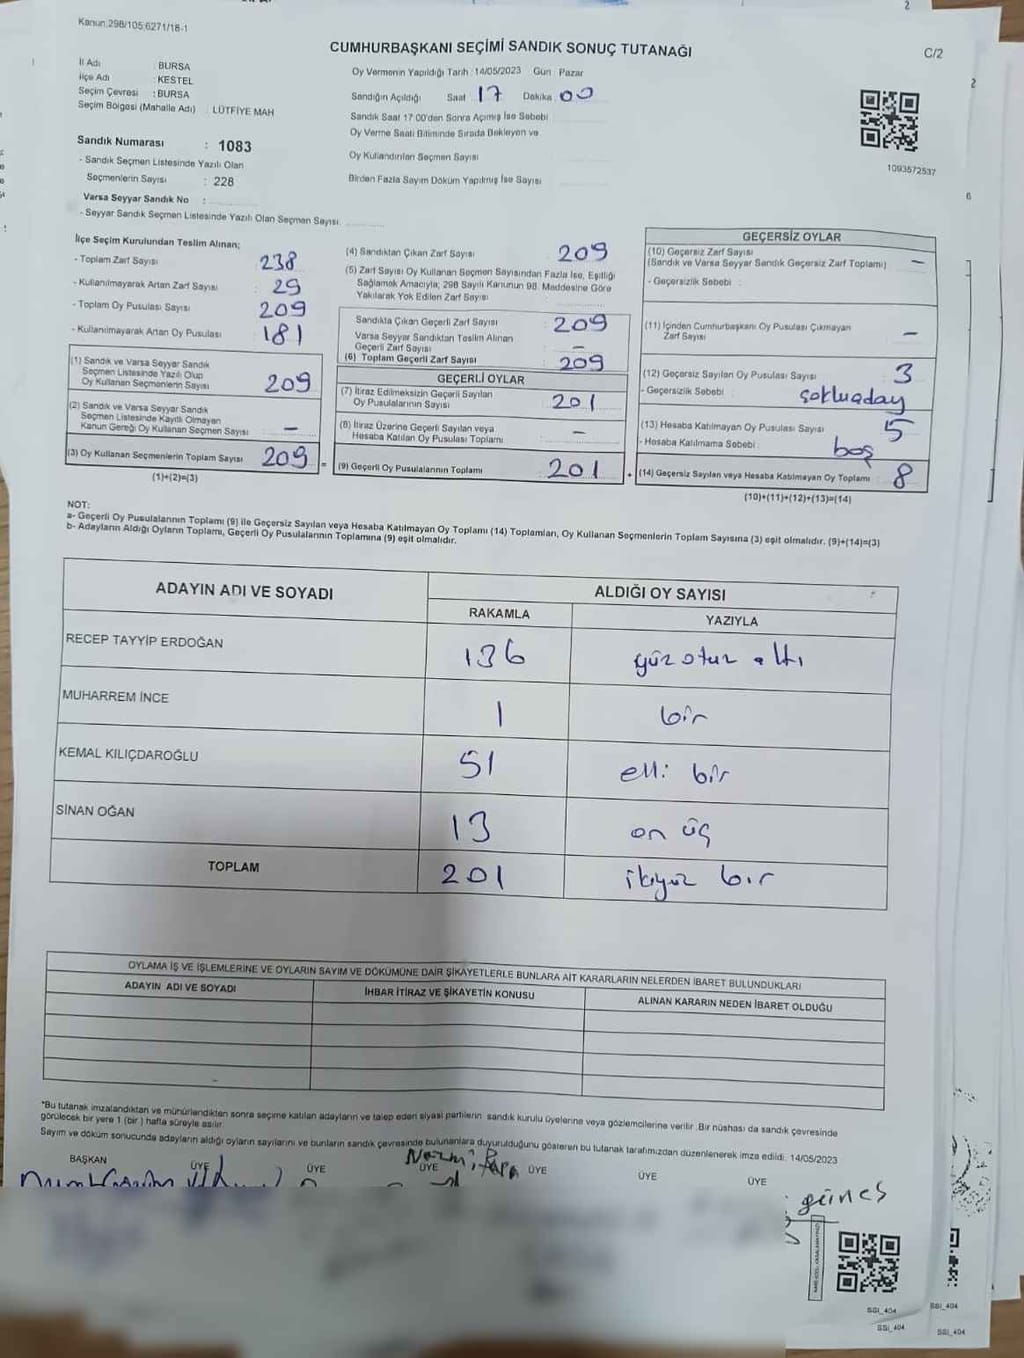 Kanun:298/105;6271/18-1
CUMHURBAŞKANI SEÇİMİ SANDIK SONUÇ TUTANAĞI
C/2
İl Adı : BURSA
İlçe Adı : KESTEL
Seçim Çevresi : BURSA
Seçim Bölgesi (Mahalle Adı) : LÜTFİYE MAH
Oy Vermenin Yapıldığı Tarih : 14/05/2023 Gün : Pazar
Sandığın Açıldığı Saat 17 Dakika 00
Sandık Saat 17:00'den Sonra Açımış İse Sebebi
Oy Verme Saati Bitiminde Sırada Bekleyen ve
Oy Kullandırılan Seçmen Sayısı
Birden Fazla Sayım Döküm Yapılmış İse Sayısı
1093572537
Sandık Numarası : 1083
- Sandık Seçmen Listesinde Yazılı Olan
Seçmenlerin Sayısı : 228
Varsa Seyyar Sandık No :
- Seyyar Sandık Seçmen Listesinde Yazılı Olan Seçmen Sayısı
İlçe Seçim Kurulundan Teslim Alınan;
- Toplam Zarf Sayısı 238
- Kullanılmayarak Artan Zarf Sayısı 29
- Toplam Oy Pusulası Sayısı 209
- Kullanılmayarak Artan Oy Pusulası 181
(1) Sandık ve Varsa Seyyar Sandık
Seçmen Listesinde Yazılı Olup
Oy Kullanan Seçmenlerin Sayısı 209
(2) Sandık ve Varsa Seyyar Sandık
Seçmen Listesinde Kayıtlı Olmayan
Kanun Gereği Oy Kullanan Seçmen Sayısı –
(3) Oy Kullanan Seçmenlerin Toplam Sayısı 209 =
(1)+(2)=(3)
(4) Sandıktan Çıkan Zarf Sayısı 209
(5) Zarf Sayısı Oy Kullanan Seçmen Sayısından Fazla İse, Eşitliği
Sağlamak Amacıyla; 298 Sayılı Kanunun 98. Maddesine Göre
Yakılarak Yok Edilen Zarf Sayısı
Sandıkta Çıkan Geçerli Zarf Sayısı 209
Varsa Seyyar Sandıktan Teslim Alınan
Geçerli Zarf Sayısı –
(6) Toplam Geçerli Zarf Sayısı 209
GEÇERLİ OYLAR
(7) İtiraz Edilmeksizin Geçerli Sayılan
Oy Pusulalarının Sayısı 201
(8) İtiraz Üzerine Geçerli Sayılan veya
Hesaba Katılan Oy Pusulası Toplamı –
(9) Geçerli Oy Pusulalarının Toplamı 201 +
GEÇERSİZ OYLAR
(10) Geçersiz Zarf Sayısı
(Sandık ve Varsa Seyyar Sandık Geçersiz Zarf Toplamı) –
- Geçersizlik Sebebi :
(11) İçinden Cumhurbaşkanı Oy Pusulası Çıkmayan
Zarf Sayısı –
(12) Geçersiz Sayılan Oy Pusulası Sayısı 3
- Geçersizlik Sebebi : çokluaday
(13) Hesaba Katılmayan Oy Pusulası Sayısı 5
- Hesaba Katılmama Sebebi : boş
(14) Geçersiz Sayılan veya Hesaba Katılmayan Oy Toplamı 8
(10)+(11)+(12)+(13)=(14)
NOT:
a- Geçerli Oy Pusulalarının Toplamı (9) ile Geçersiz Sayılan veya Hesaba Katılmayan Oy Toplamı (14) Toplamları, Oy Kullanan Seçmenlerin Toplam Sayısına (3) eşit olmalıdır. (9)+(14)=(3)
b- Adayların Aldığı Oyların Toplamı, Geçerli Oy Pusulalarının Toplamına (9) eşit olmalıdır.
ADAYIN ADI VE SOYADI
ALDIĞI OY SAYISI
RAKAMLA YAZIYLA
RECEP TAYYİP ERDOĞAN 136 yüz otuz altı
MUHARREM İNCE 1 bir
KEMAL KILIÇDAROĞLU 51 elli bir
SİNAN OĞAN 13 on üç
TOPLAM 201 ikiyüz bir
OYLAMA İŞ VE İŞLEMLERİNE VE OYLARIN SAYIM VE DÖKÜMÜNE DAİR ŞİKAYETLERLE BUNLARA AİT KARARLARIN NELERDEN İBARET BULUNDUKLARI
ADAYIN ADI VE SOYADI İHBAR İTİRAZ VE ŞİKAYETİN KONUSU ALINAN KARARIN NEDEN İBARET OLDUĞU
*Bu tutanak imzalandıktan ve mühürlendikten sonra seçime katılan adayların ve talep eden siyasi partilerin sandık kurulu üyelerine veya gözlemcilerine verilir. Bir nüshası da sandık çevresinde
görülecek bir yere 1 (bir) hafta süreyle asılır.
Sayım ve döküm sonucunda adayların aldığı oyların sayılarını ve bunların sandık çevresinde bulunanlara duyurulduğunu gösteren bu tutanak tarafımızdan düzenlenerek imza edildi. 14/05/2023
BAŞKAN ÜYE ÜYE ÜYE ÜYE ÜYE ÜYE
güneş
SSI_404
SSI_404
SSI_404
SSI_404